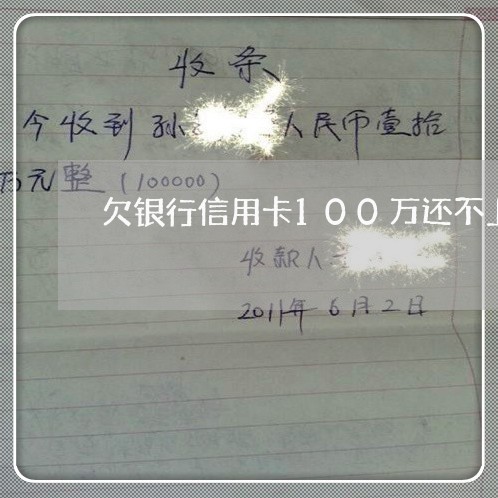 收条
今收到孙人民币壹拾
万元整（100000）
欠银行信用卡100万还不
收款人
2011年6月2日